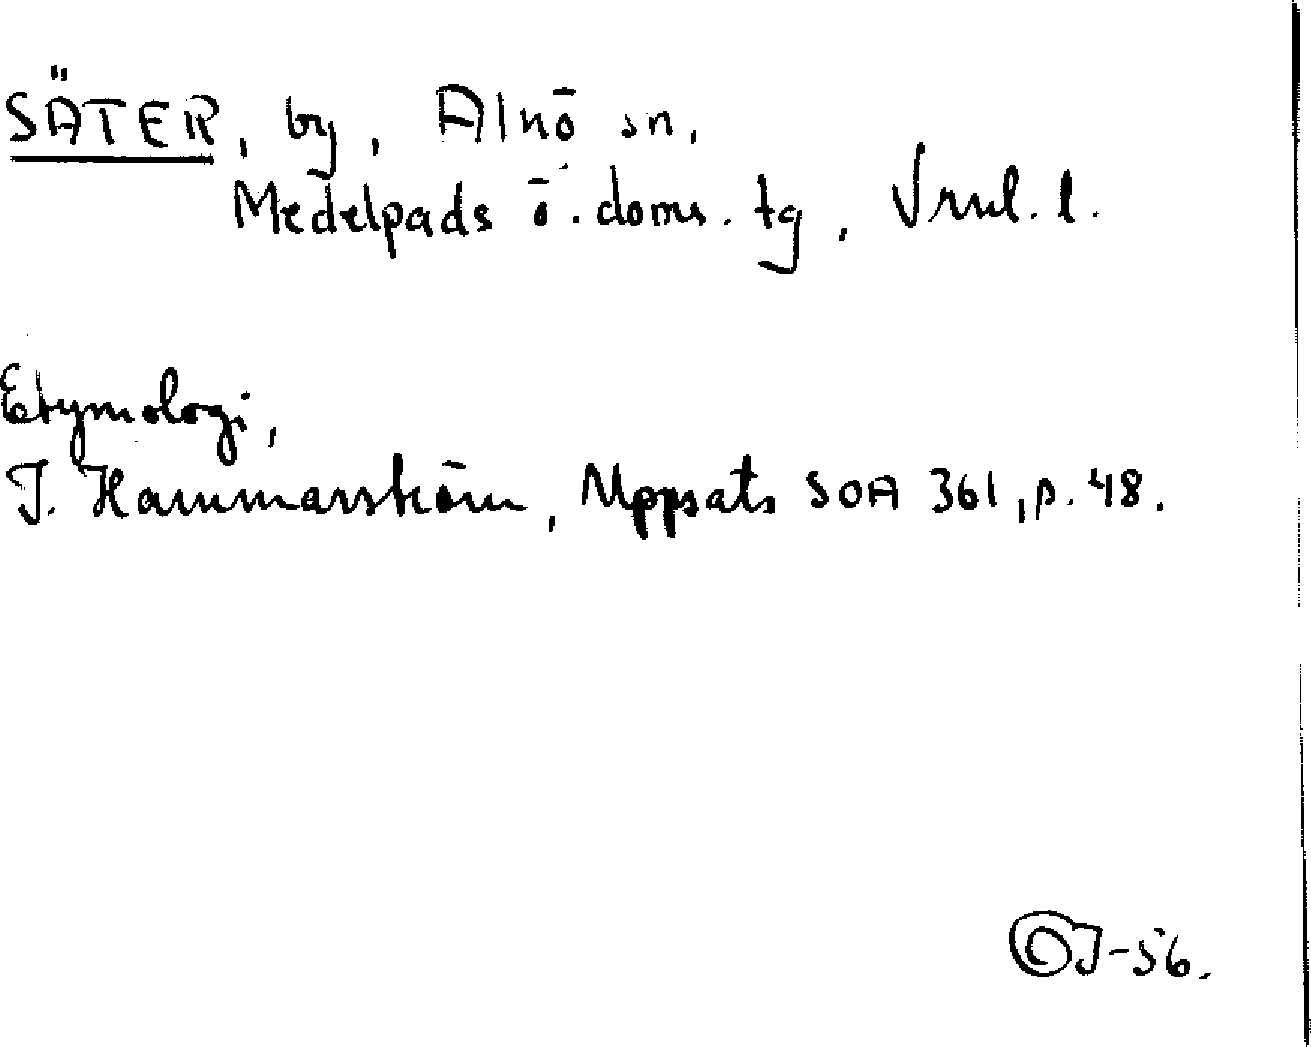 SÄTER, by, Alnö sn,
Medelpads ö. doms. tg, Vrnl. l.
Etymologi,
J. Hammarström, Uppsats SOA 361, p. 48.
OJ-56.